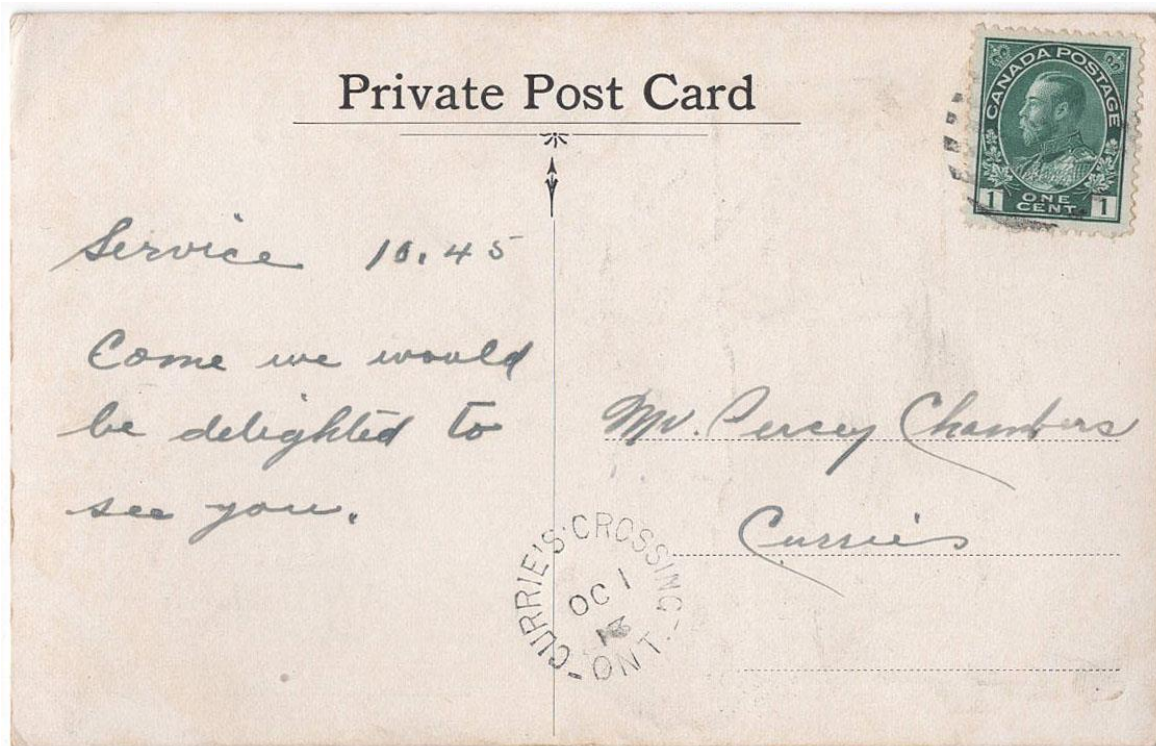 Private Post Card
CANADA POSTAGE
1 ONE CENT 1
Service 10.45
Come we would
be delighted to
see you.
Mr. Percey Chambers
Currie's
CURRIE'S CROSSING
OC 1
ONT.